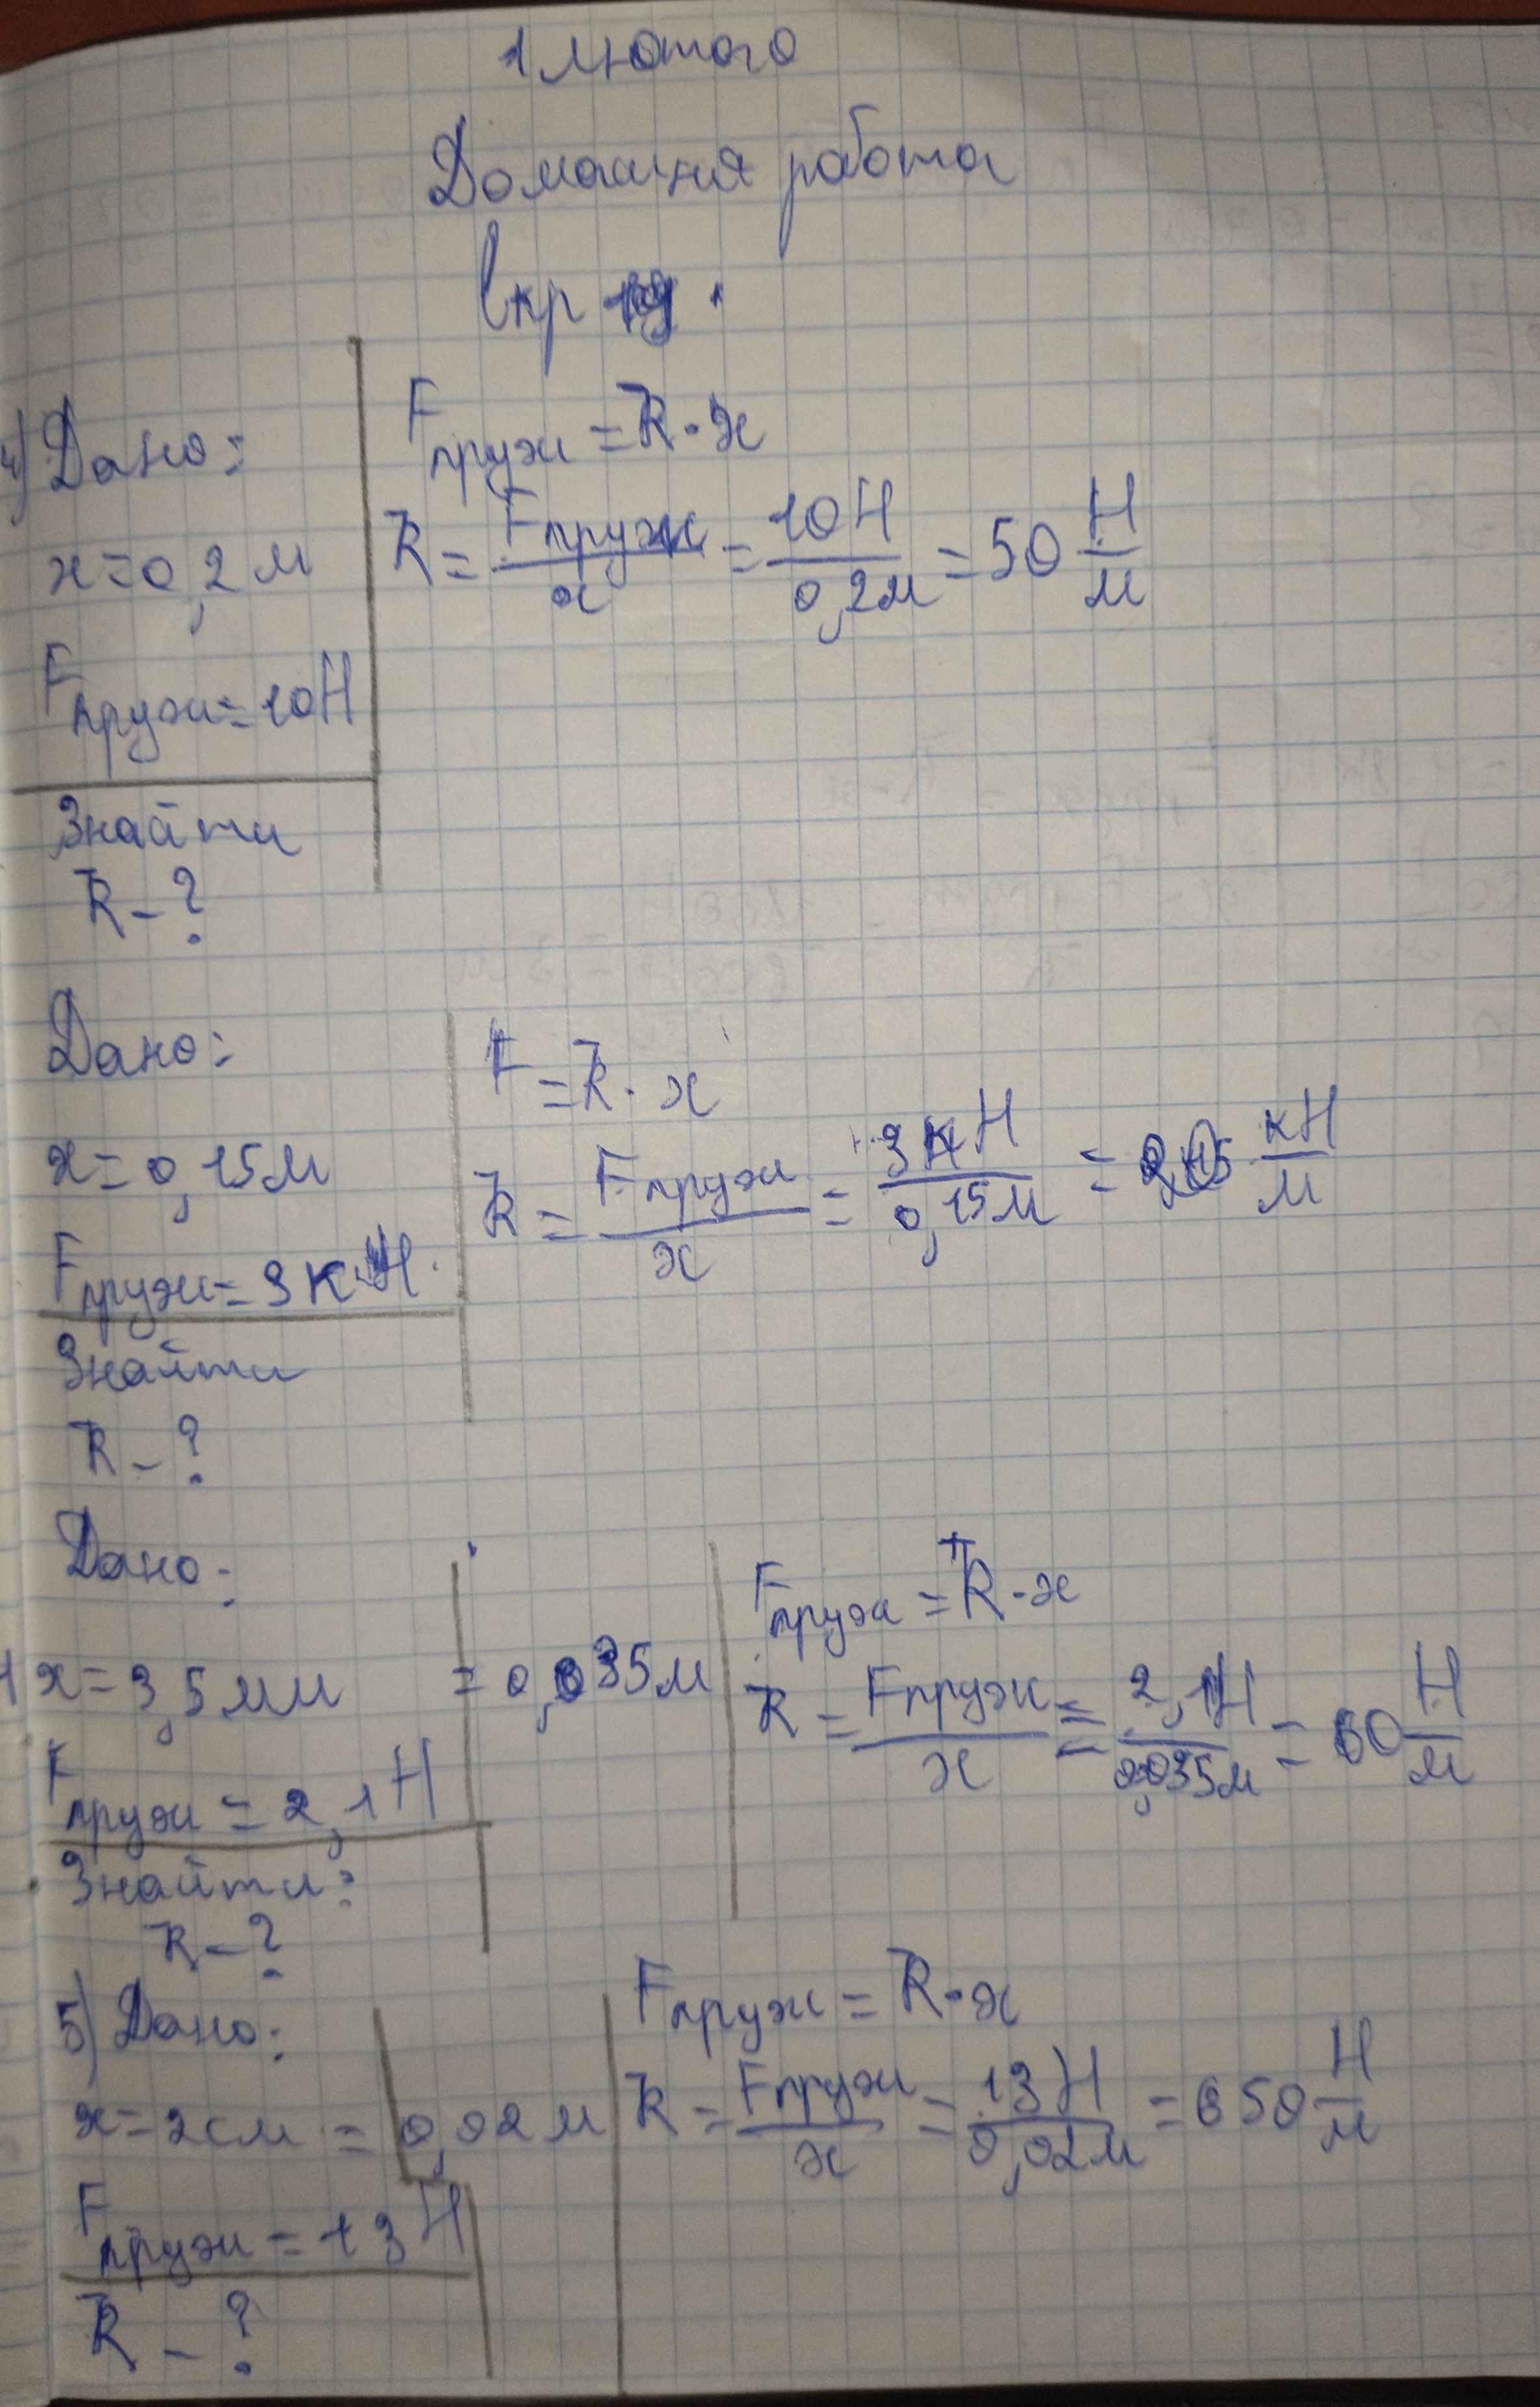 1 лютого
Домашня робота
Впр
4) Дано:
x = 0,2 м
Fпруж = 10 Н
Знайти
k - ?
Fпруж = k · x
k = Fпруж / x = 10 Н / 0,2 м = 50 Н/м
Дано:
x = 0,15 м
Fпруж = 3 кН
Знайти
k - ?
F = k · x
k = Fпруж / x = 3 кН / 0,15 м = кН/м
Дано:
x = 3,5 мм = 0,035 м
Fпруж = 2,1 Н
Знайти:
k - ?
Fпруж = k · x
k = Fпруж / x = 2,1 Н / 0,035 м = 60 Н/м
5) Дано:
x = 2 см = 0,02 м
Fпруж = 13 Н
k - ?
Fпруж = k · x
k = Fпруж / x = 13 Н / 0,02 м = 650 Н/м